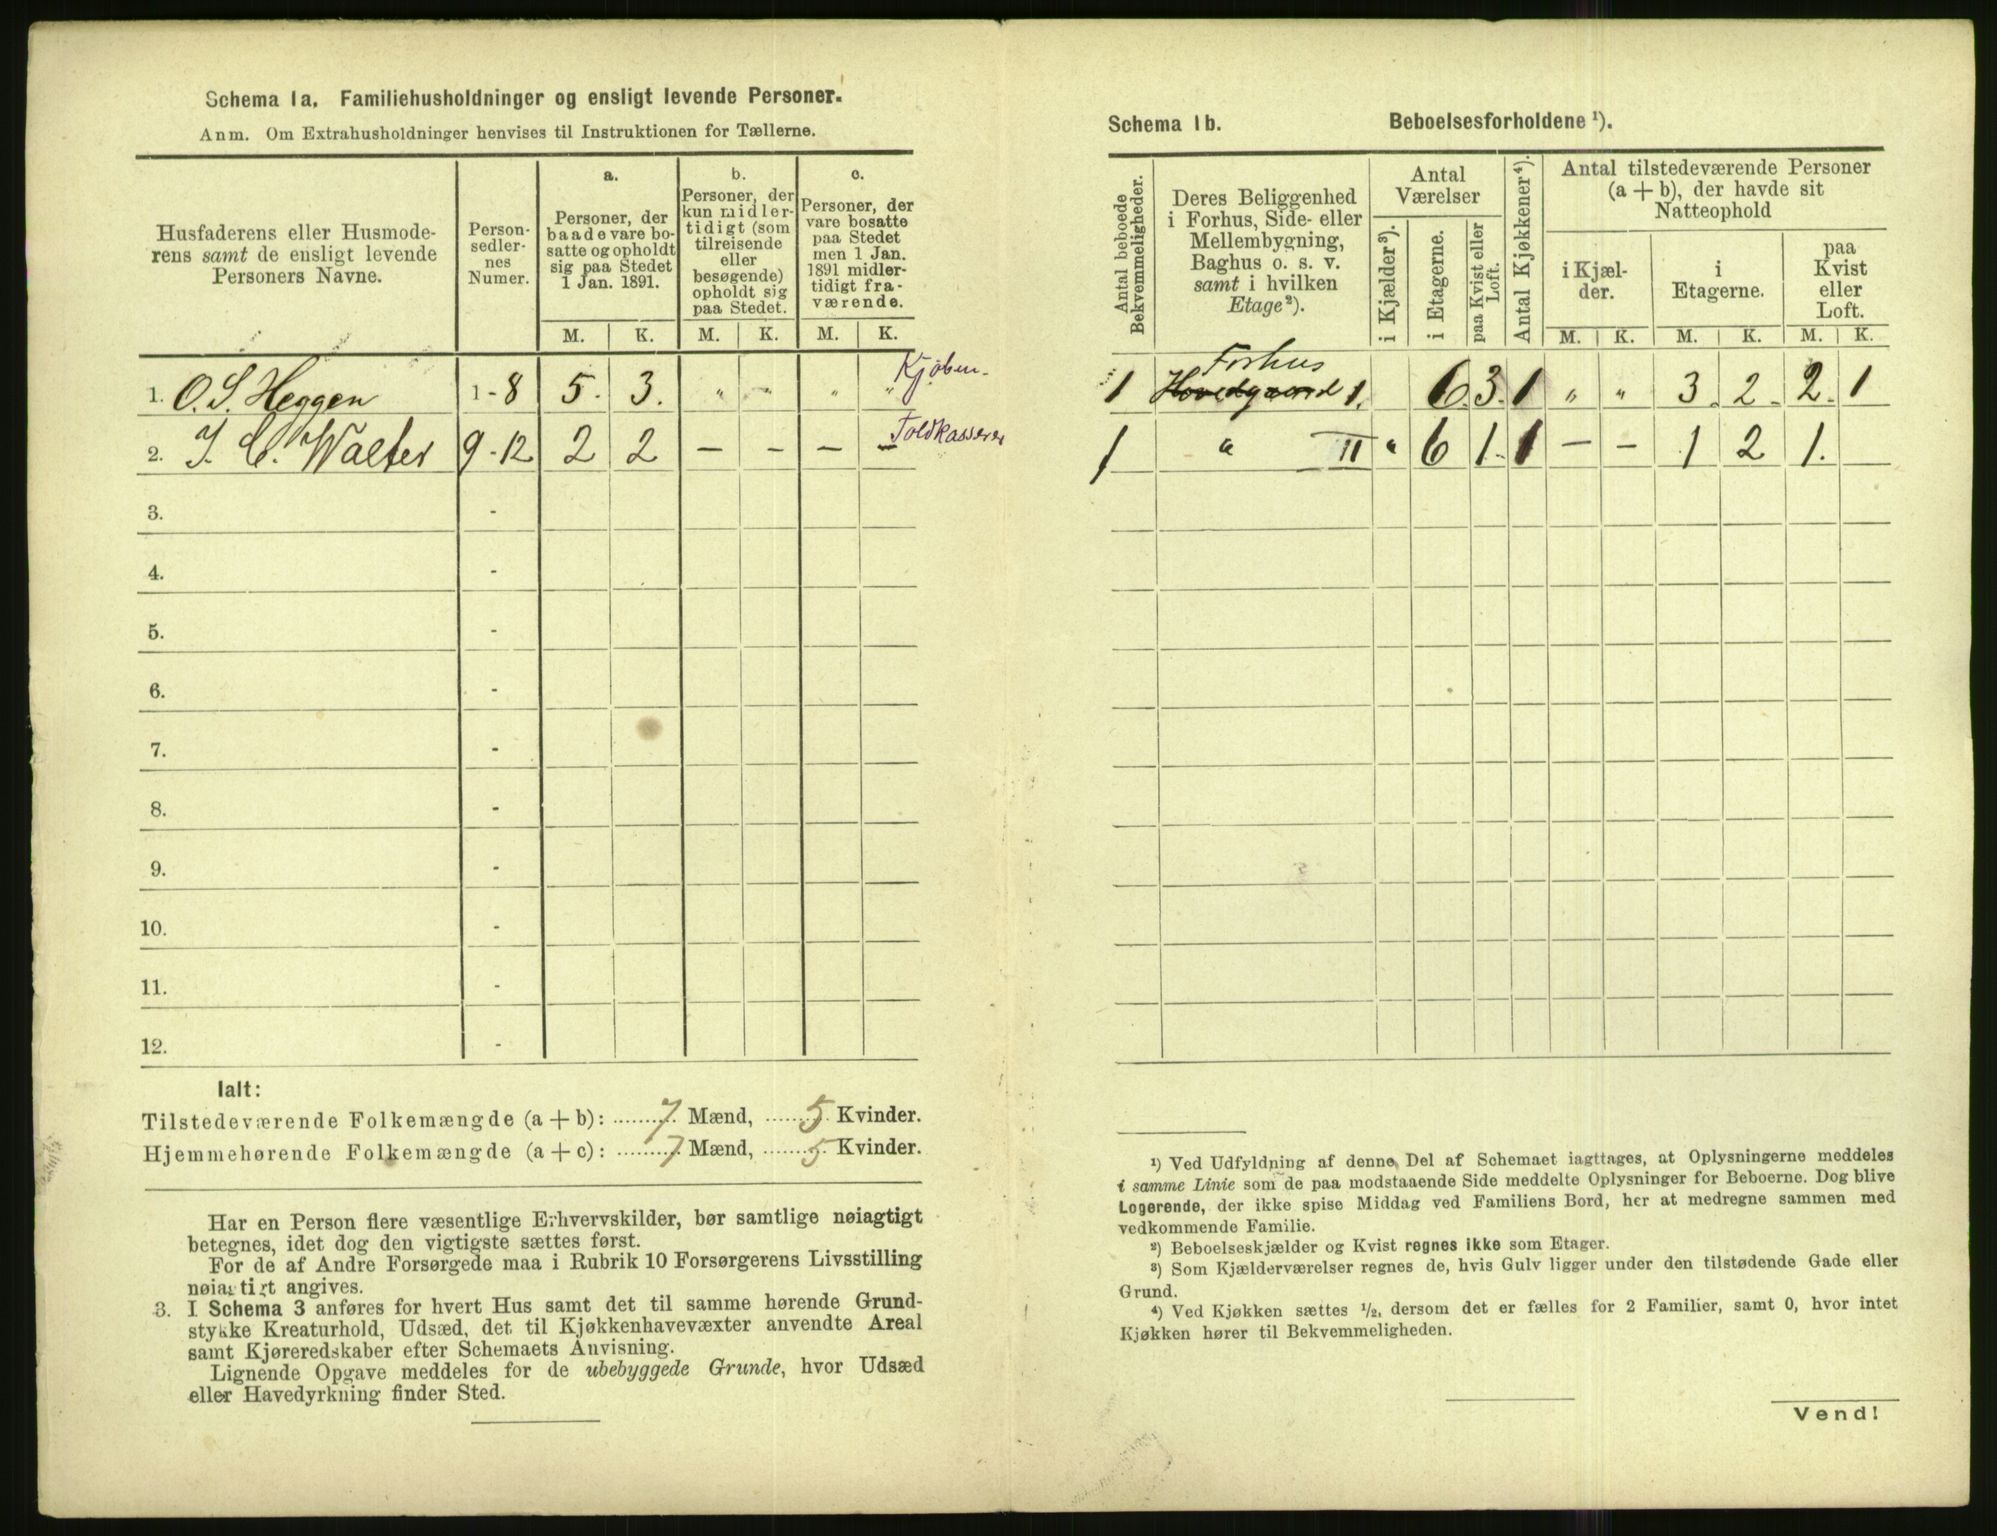 Schema 1a. Familiehusholdninger og ensligt levende Personer.
Anm. Om Extrahusholdninger henvises til Instruktionen for Tællerne.
Husfaderens eller Husmode-
rens samt de ensligt levende
Personers Navne.
Person-
sedler-
nes
Numer.
a.
Personer, der
baade vare bo-
satte og opholdt
sig paa Stedet
1 Jan. 1891.
b.
Personer, der
kun midler-
tidigt (som
tilreisende
eller
besøgende)
opholdt sig
paa Stedet.
c.
Personer, der
vare bosatte
paa Stedet
men 1 Jan.
1891 midler-
tidigt fra-
værende.
M. K. M. K. M. K.
1. O. S. Heggen 1-8 5. 3. " " " " Kjøben-
2. J. C. Walter 9-12 2 2 – – – – Toldkasserer
3. -
4. -
5. -
6. -
7. -
8. -
9. -
10. -
11. -
12. -
Ialt:
Tilstedeværende Folkemængde (a + b): 7 Mænd, 5 Kvinder.
Hjemmehørende Folkemængde (a + c): 7 Mænd, 5 Kvinder.
Har en Person flere væsentlige Erhvervskilder, bør samtlige nøiagtigt
betegnes, idet dog den vigtigste sættes først.
For de af Andre Forsørgede maa i Rubrik 10 Forsørgerens Livsstilling
nøiagtigt angives.
3. I Schema 3 anføres for hvert Hus samt det til samme hørende Grund-
stykke Kreaturhold, Udsæd, det til Kjøkkenhavevæxter anvendte Areal
samt Kjøreredskaber efter Schemaets Anvisning.
Lignende Opgave meddeles for de ubebyggede Grunde, hvor Udsæd
eller Havedyrkning finder Sted.
Schema 1b. Beboelsesforholdene ¹).
Antal beboede
Bekvemmeligheder.
Deres Beliggenhed
i Forhus, Side- eller
Mellembygning,
Baghus o. s. v.
samt i hvilken
Etage²).
Antal
Værelser
i Kjælder³).
i Etagerne.
paa Kvist eller
Loft.
Antal Kjøkkener⁴).
Antal tilstedeværende Personer
(a + b), der havde sit
Natteophold
i Kjæl-
der.
i
Etagerne.
paa
Kvist
eller
Loft.
M. K. M. K. M. K.
Forhus
1 Hovedgaard 1. 6. 3. 1 " " 3. 2. 2. 1
1 " II " 6 1. 1 – – 1 2 1.
¹) Ved Udfyldning af denne Del af Schemaet iagttages, at Oplysningerne meddeles
i samme Linie som de paa modstaaende Side meddelte Oplysninger for Beboerne. Dog blive
Logerende, der ikke spise Middag ved Familiens Bord, her at medregne sammen med
vedkommende Familie.
²) Beboelseskjælder og Kvist regnes ikke som Etager.
³) Som Kjælderværelser regnes de, hvis Gulv ligger under den tilstødende Gade eller
Grund.
⁴) Ved Kjøkken sættes ½, dersom det er fælles for 2 Familier, samt 0, hvor intet
Kjøkken hører til Bekvemmeligheden.
Vend!